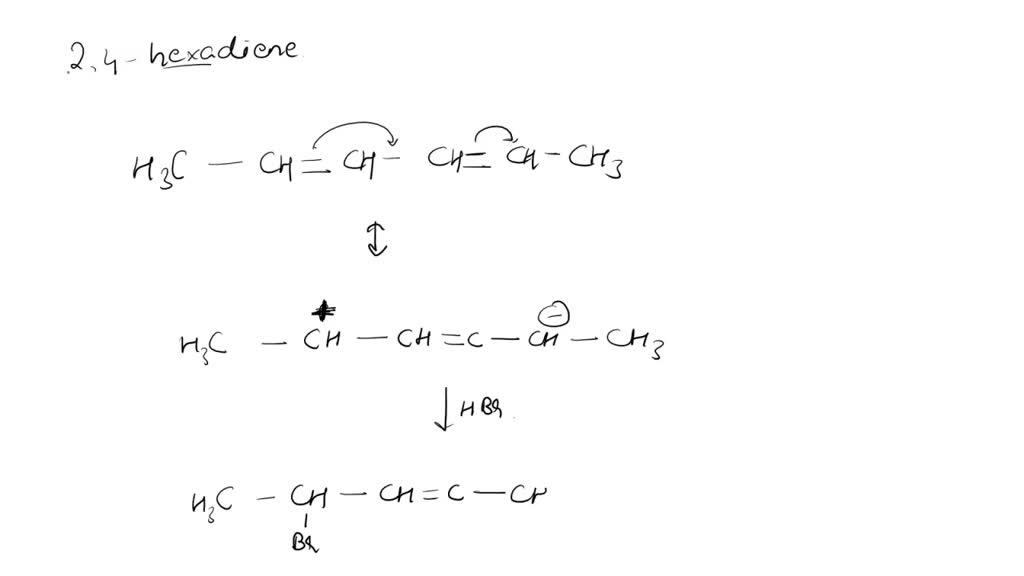 2,4-hexadiene
H₃C — CH = CH — CH = CH — CH₃
↕
H₃C — CH⁺ — CH = C — CH⊖ — CH₃
↓ HBr
H₃C — CH — CH = C — CH
|
Br